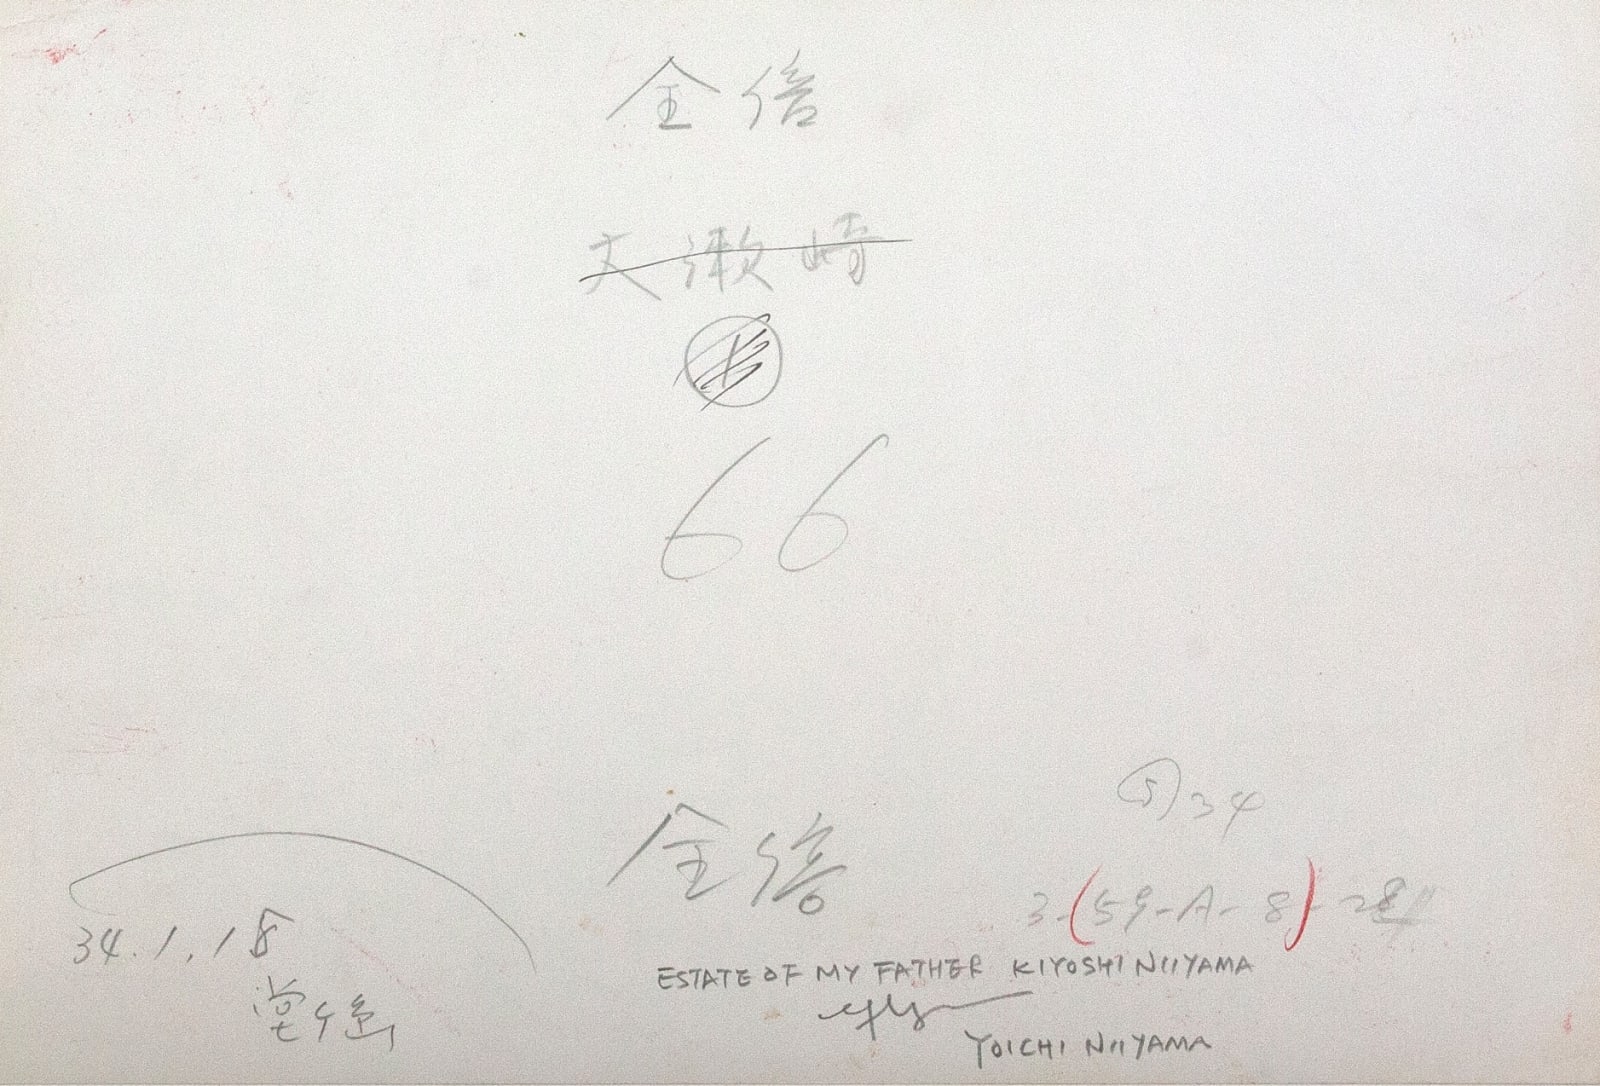 全倍
天瀬崎
66
⑤34
全倍
3-(59-A-8)-28
34.1.18
堂ヶ島
ESTATE OF MY FATHER KIYOSHI NIIYAMA
YOICHI NIIYAMA